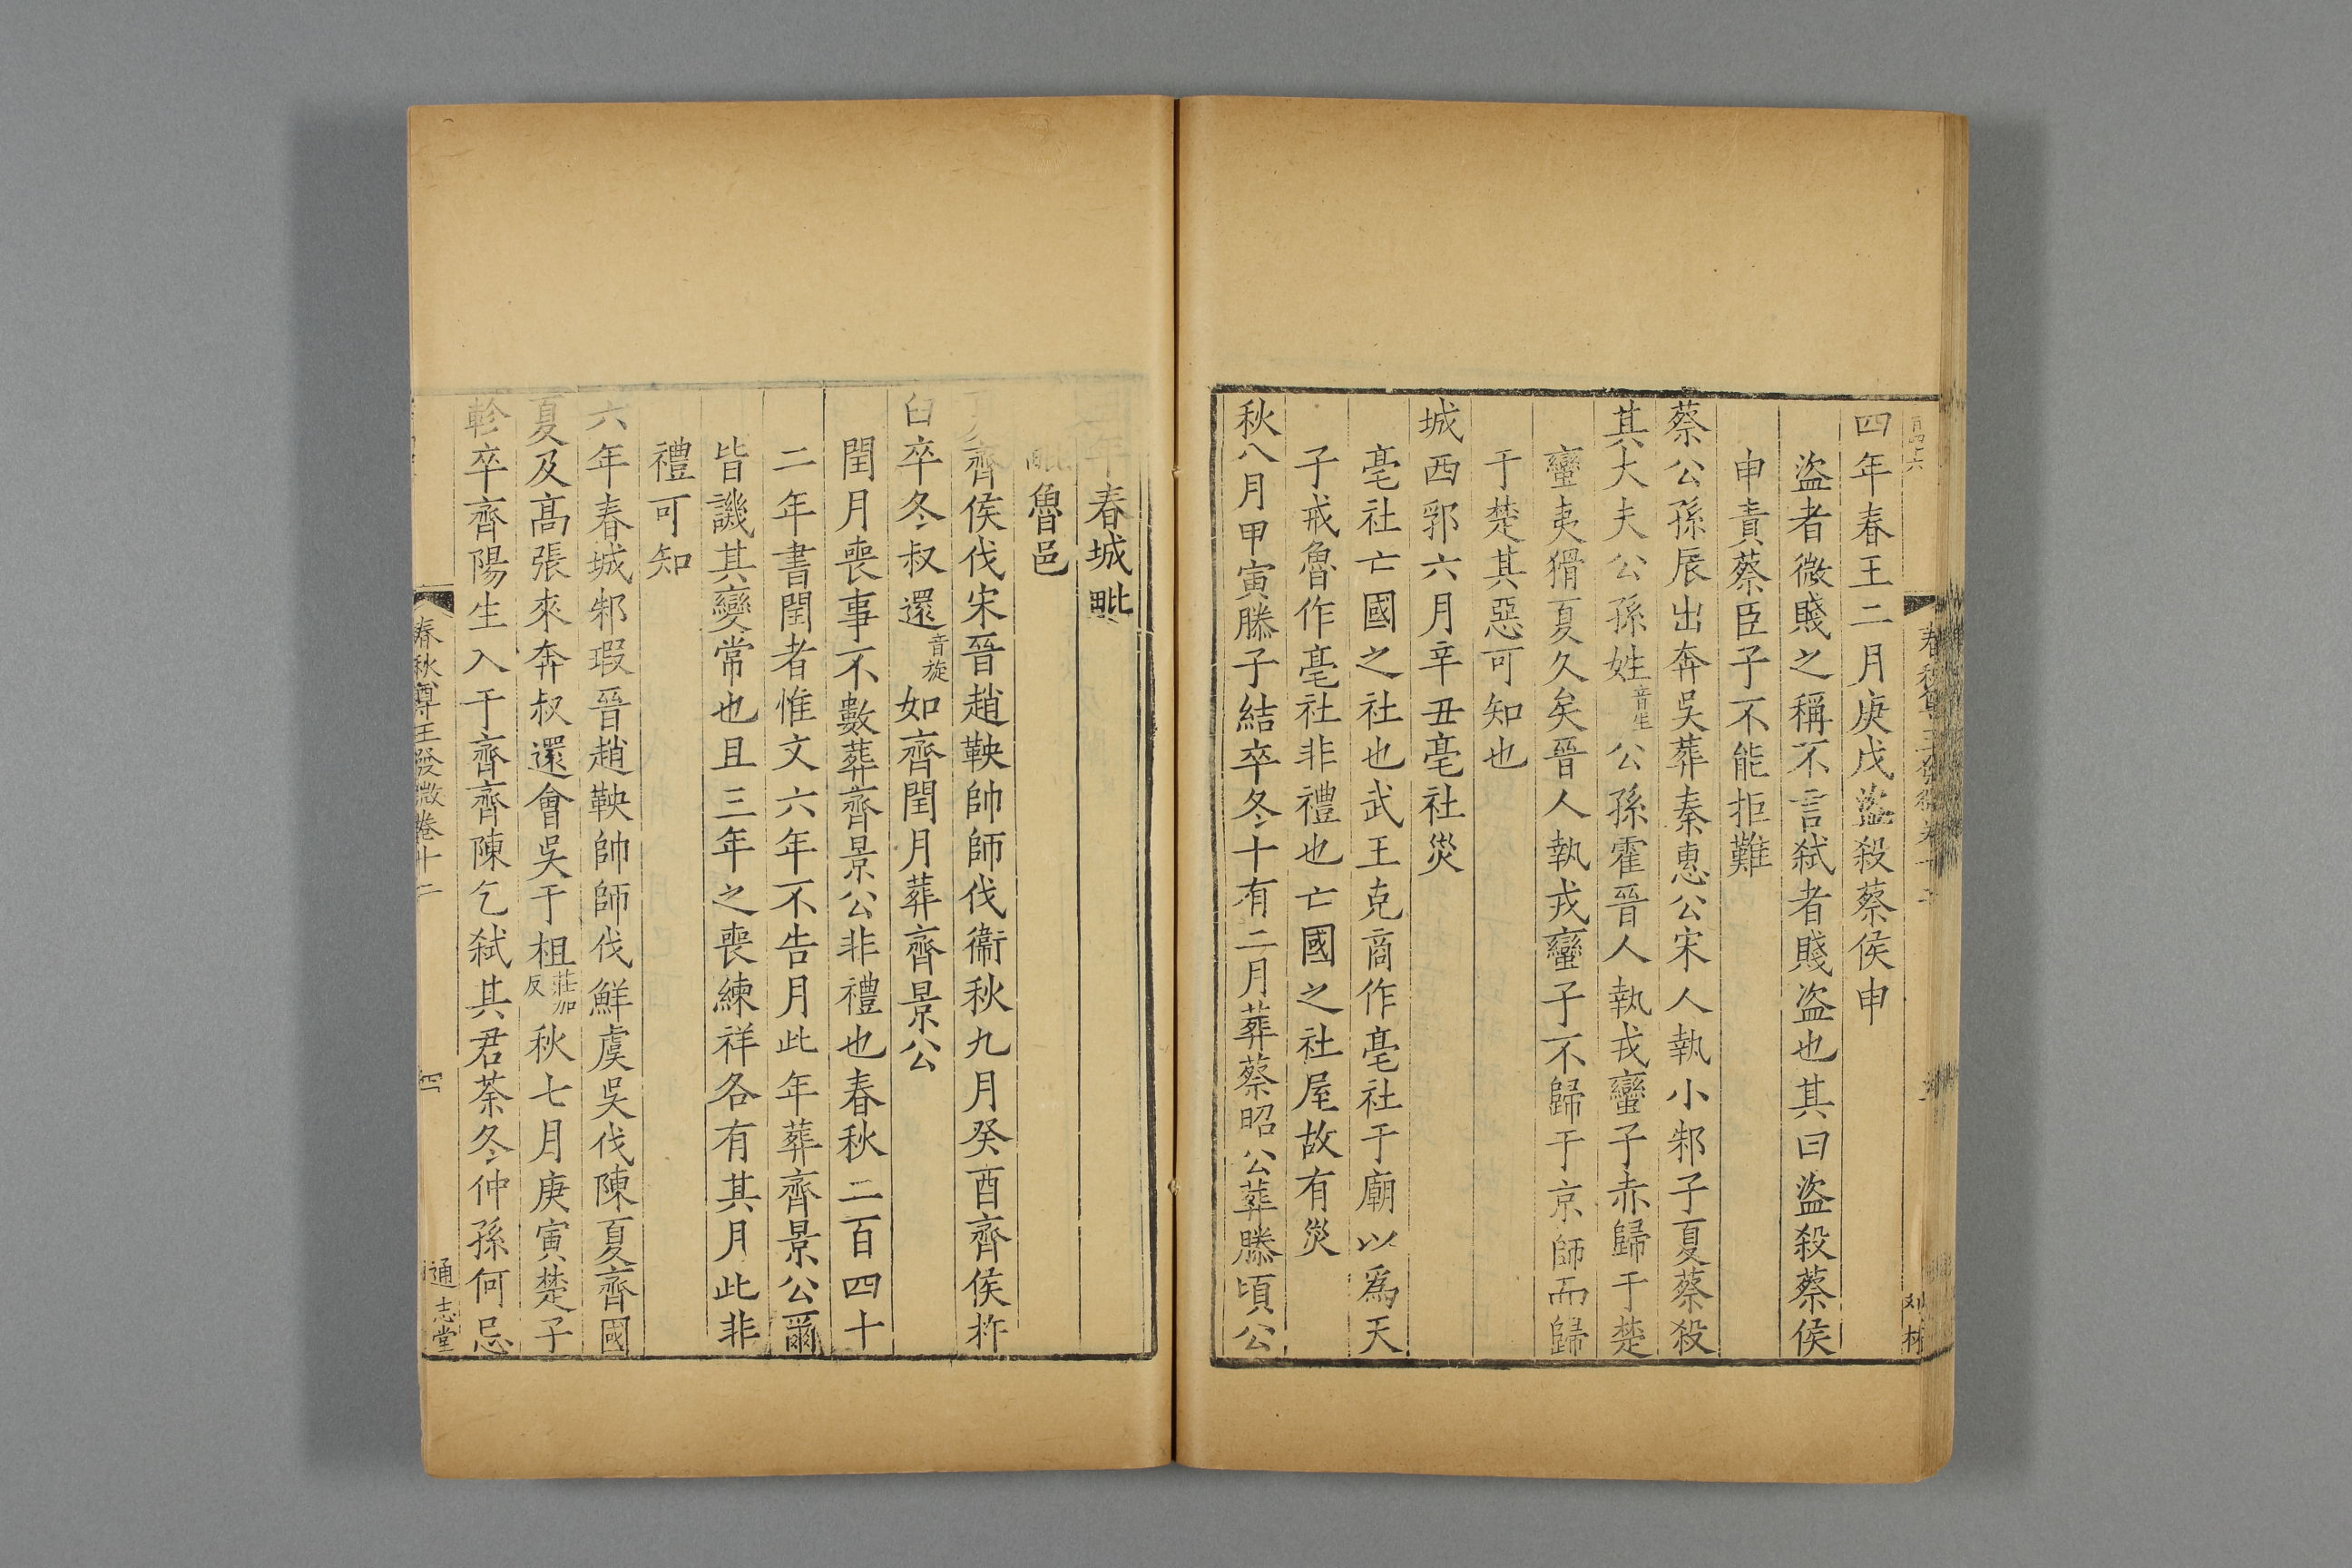 四年春王二月庚戌盜殺蔡侯申
盜者微賤之稱不言弑者賤盜也其曰盜殺蔡侯
申責蔡臣子不能拒難
蔡公孫辰出奔吳葬秦惠公宋人執小邾子夏蔡殺
其大夫公孫姓音生公孫霍晉人執戎蠻子赤歸于楚
蠻夷猾夏久矣晉人執戎蠻子不歸于京師而歸
于楚其惡可知也
城西郛六月辛丑亳社災
亳社亡國之社也武王克商作亳社于廟以爲天
子戒魯作亳社非禮也亡國之社屋故有災
秋八月甲寅滕子結卒冬十有二月葬蔡昭公葬滕頃公
年春城毗
毗魯邑
齊侯伐宋晉趙鞅帥師伐衞秋九月癸酉齊侯杵
臼卒冬叔還音旋如齊閏月葬齊景公
閏月喪事不數葬齊景公非禮也春秋二百四十
二年書閏者惟文六年不告月此年葬齊景公爾
皆譏其變常也且三年之喪練祥各有其月此非
禮可知
六年春城邾瑕晉趙鞅帥師伐鮮虞吳伐陳夏齊國
夏及高張來奔叔還會吳于柤莊加反秋七月庚寅楚子
軫卒齊陽生入于齊齊陳乞弑其君荼冬仲孫何忌
春秋尊王發微卷十二
四
通志堂